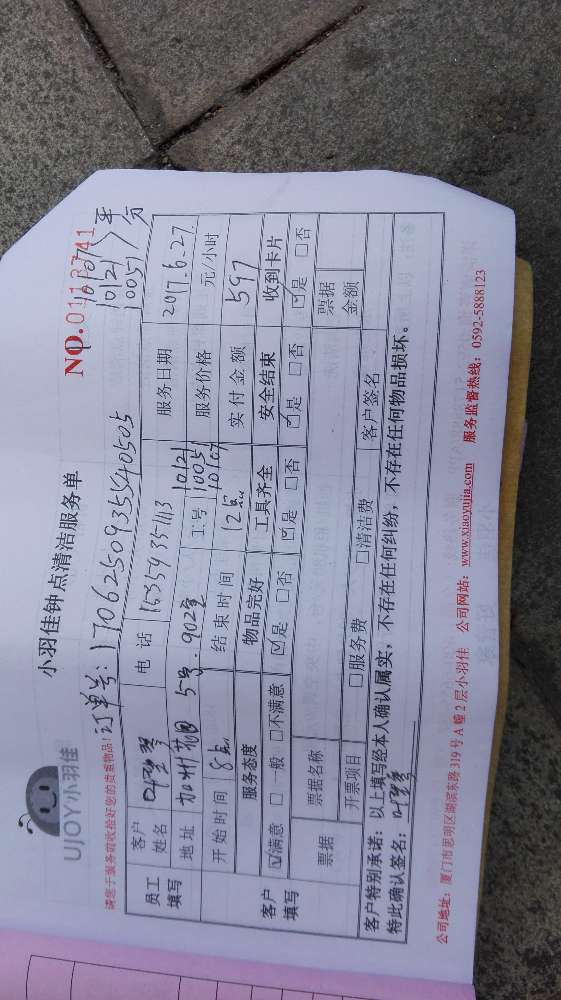 UJOY小羽佳
小羽佳钟点清洁服务单
NO.0112741
请您于服务前收捡好您的贵重物品!
订单号: 17062509355540505
10107
10121
10057
员工填写
客户姓名
电话
15359351113
服务日期
2017.6.27
地址
加州花园 5号. 902室
工号
10121
10057
10107
服务价格
元/小时
开始时间
8点
结束时间
12点
实付金额
597
客户填写
服务态度
物品完好
工具齐全
安全结束
收到卡片
☑满意 □一般 □不满意
☑是 □否
☑是 □否
☑是 □否
☑是 □否
票据
票据名称
票据金额
开票项目
□服务费
□清洁费
客户签名
客户特别承诺:以上填写经本人确认属实,不存在任何纠纷,不存在任何物品损坏。
特此确认签名:
公司地址:厦门市思明区湖滨东路319号A幢2层小羽佳 公司网站:www.xiaoyujia.com 服务监督热线:0592-5888123